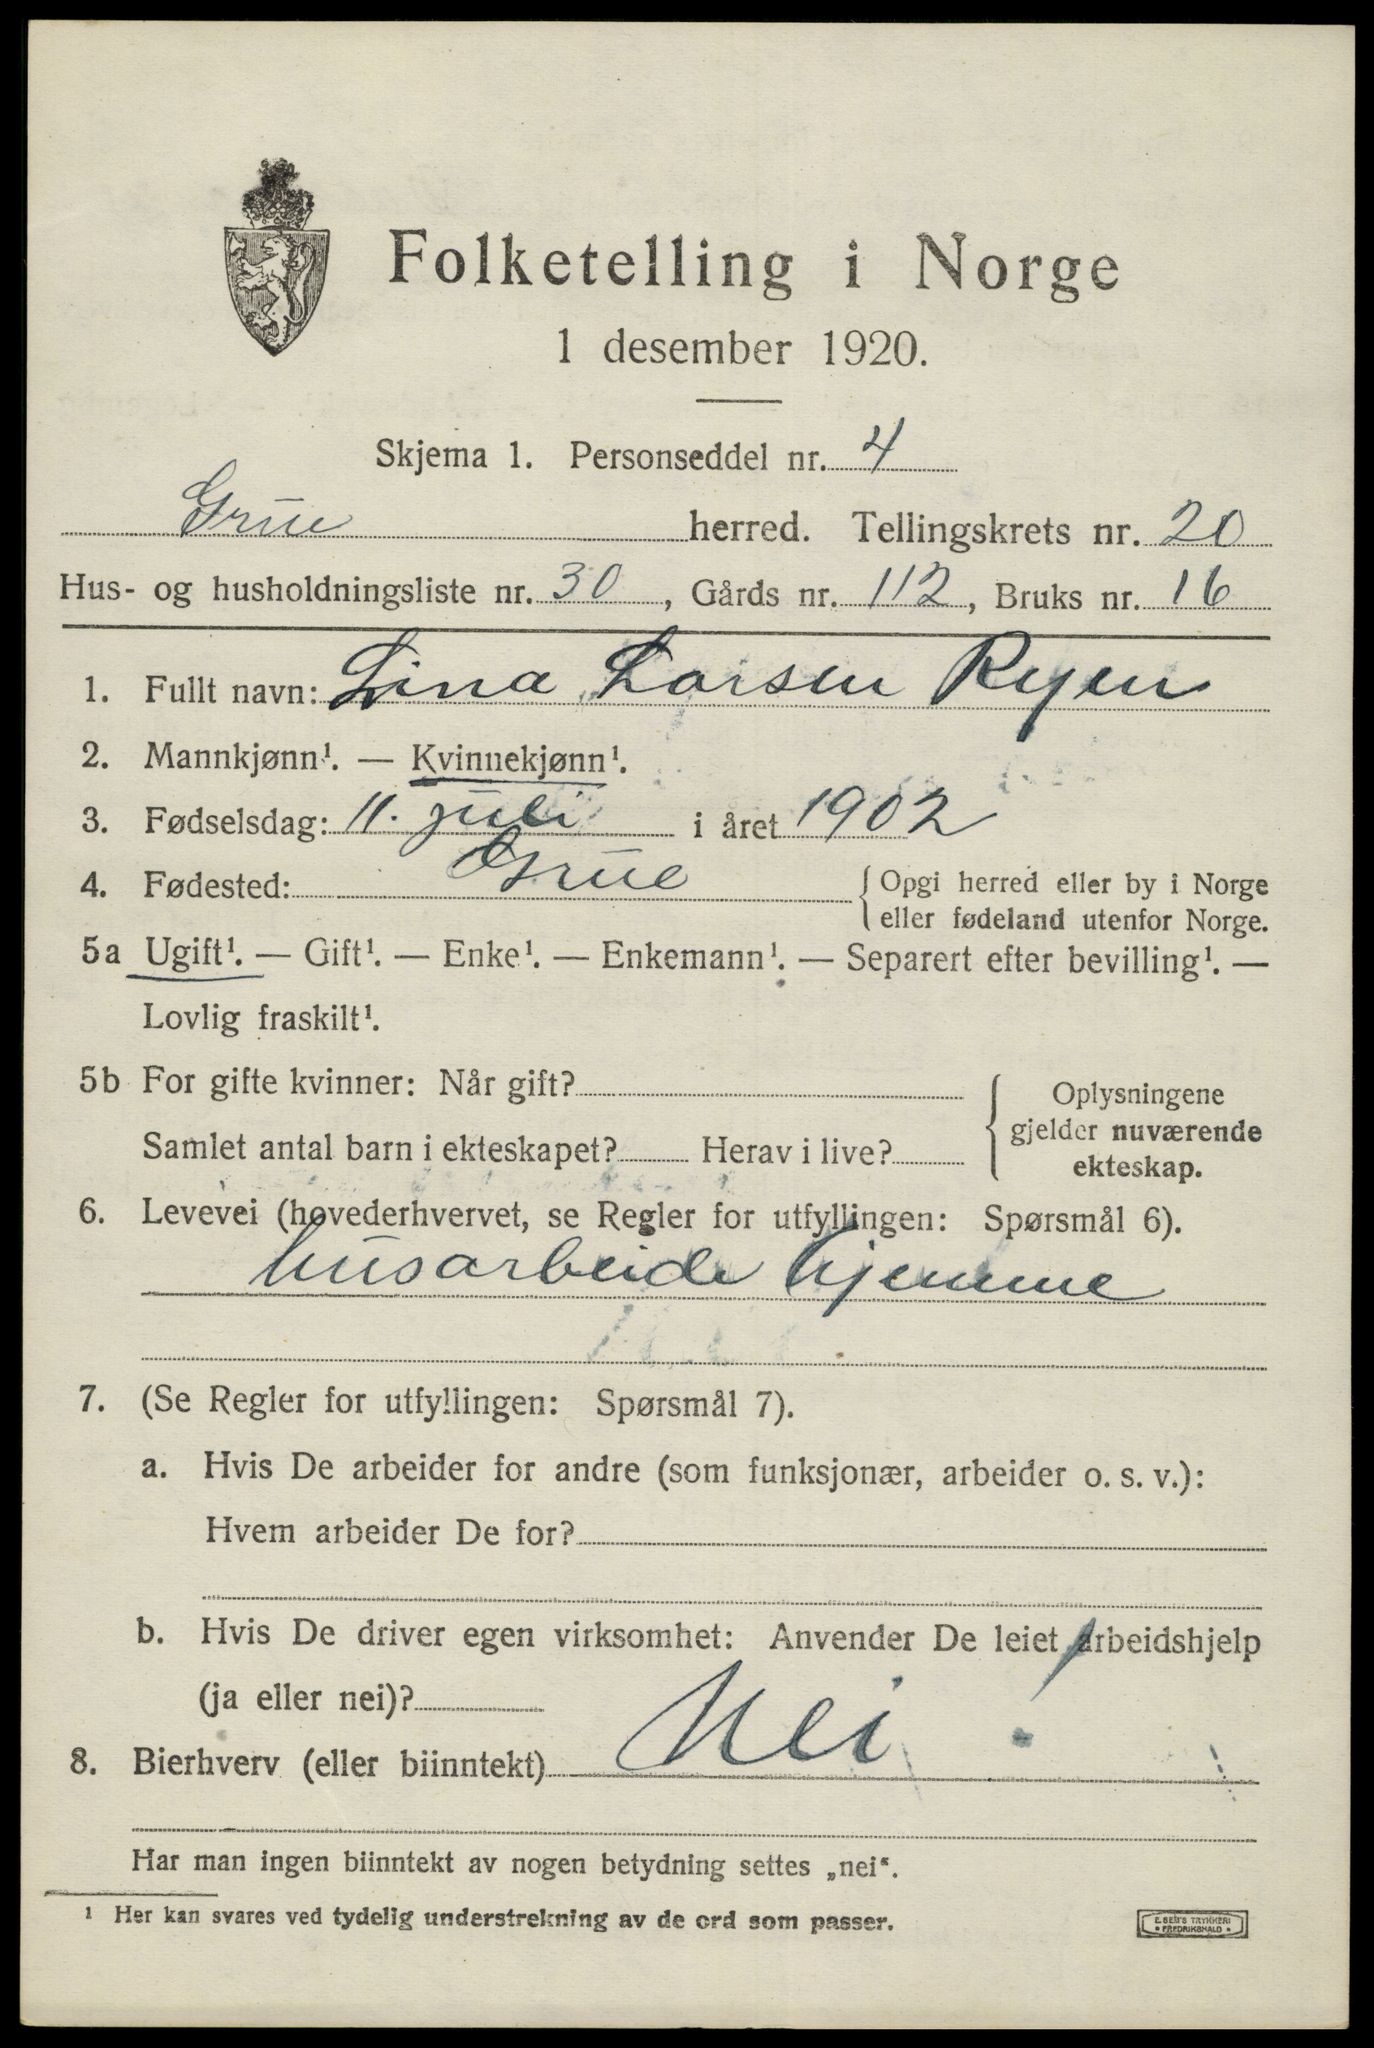 Folketelling i Norge
1 desember 1920.
Skjema 1. Personseddel nr. 4
Grue herred. Tellingskrets nr. 20
Hus- og husholdningsliste nr. 30, Gårds nr. 112, Bruks nr. 16
1. Fullt navn: Lina Larsen Ryen
2. Mannkjønn¹. — Kvinnekjønn¹.
3. Fødselsdag: 11. juli i året 1902
4. Fødested: Grue {Opgi herred eller by i Norge
eller fødeland utenfor Norge.
5a Ugift¹. — Gift¹. — Enke¹. — Enkemann¹. — Separert efter bevilling¹. —
Lovlig fraskilt¹.
5b For gifte kvinner: Når gift?
Samlet antal barn i ekteskapet? Herav i live?
Oplysningene
gjelder nuværende
ekteskap.
6. Levevei (hovederhvervet, se Regler for utfyllingen: Spørsmål 6).
husarbeide hjemme
7. (Se Regler for utfyllingen: Spørsmål 7).
a. Hvis De arbeider for andre (som funksjonær, arbeider o. s. v.):
Hvem arbeider De for?
b. Hvis De driver egen virksomhet: Anvender De leiet arbeidshjelp
(ja eller nei)?
8. Bierhverv (eller biinntekt) Nei!
Har man ingen biinntekt av nogen betydning settes „nei“.
¹ Her kan svares ved tydelig understrekning av de ord som passer.
E. SEM'S TRYKKERI
FREDRIKSHALD